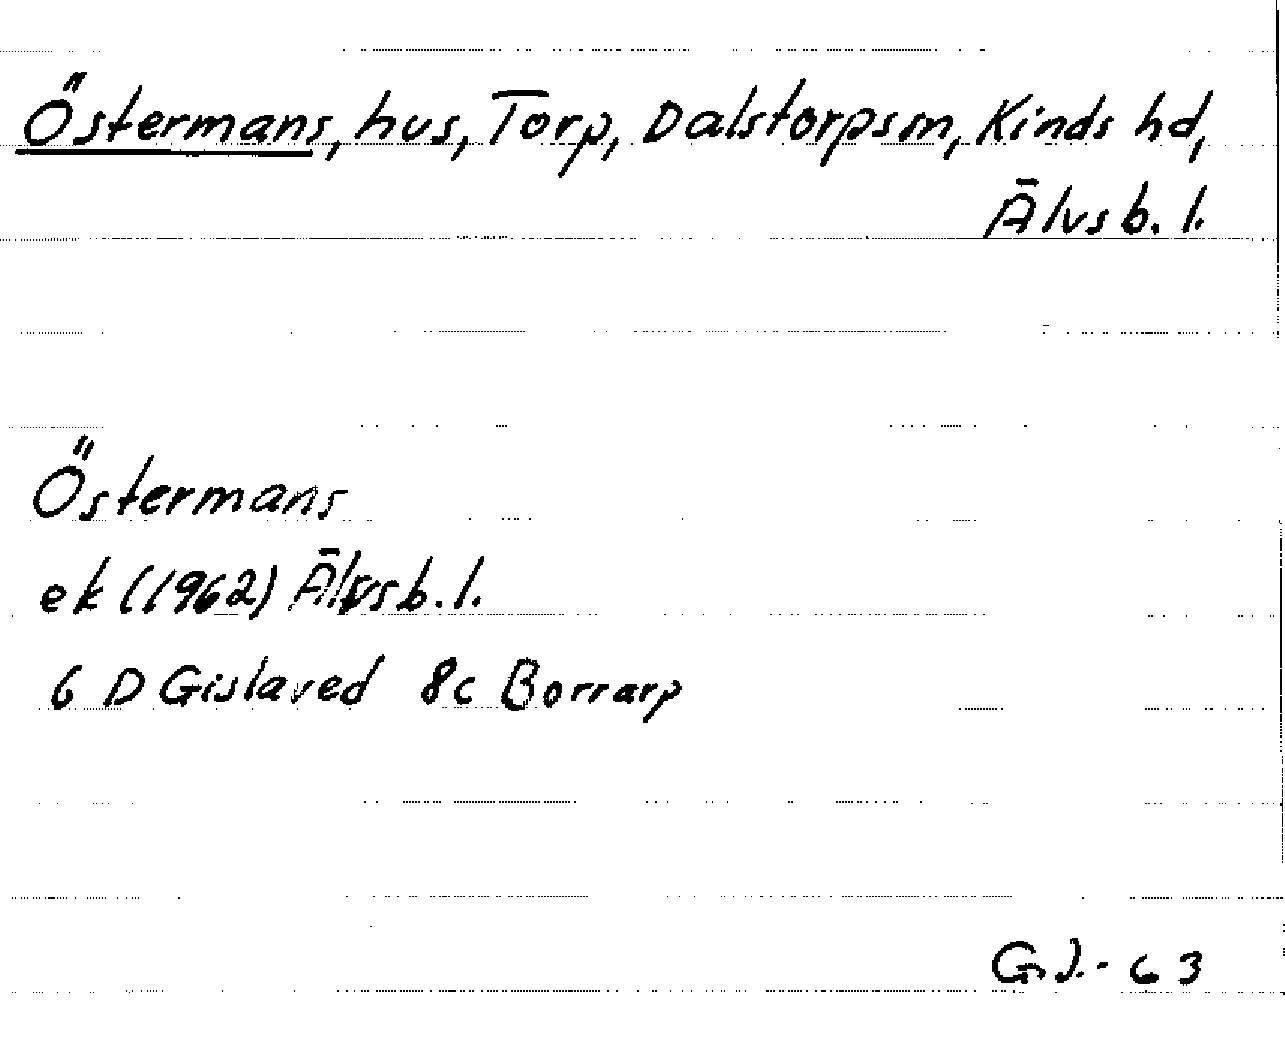 Östermans, hus, Torp, Dalstorpsm, Kinds hd,
Älvsb. l.
Östermans
ek (1962) Älvsb. l.
6 D Gislaved 8c Borrarp
G.J.-63